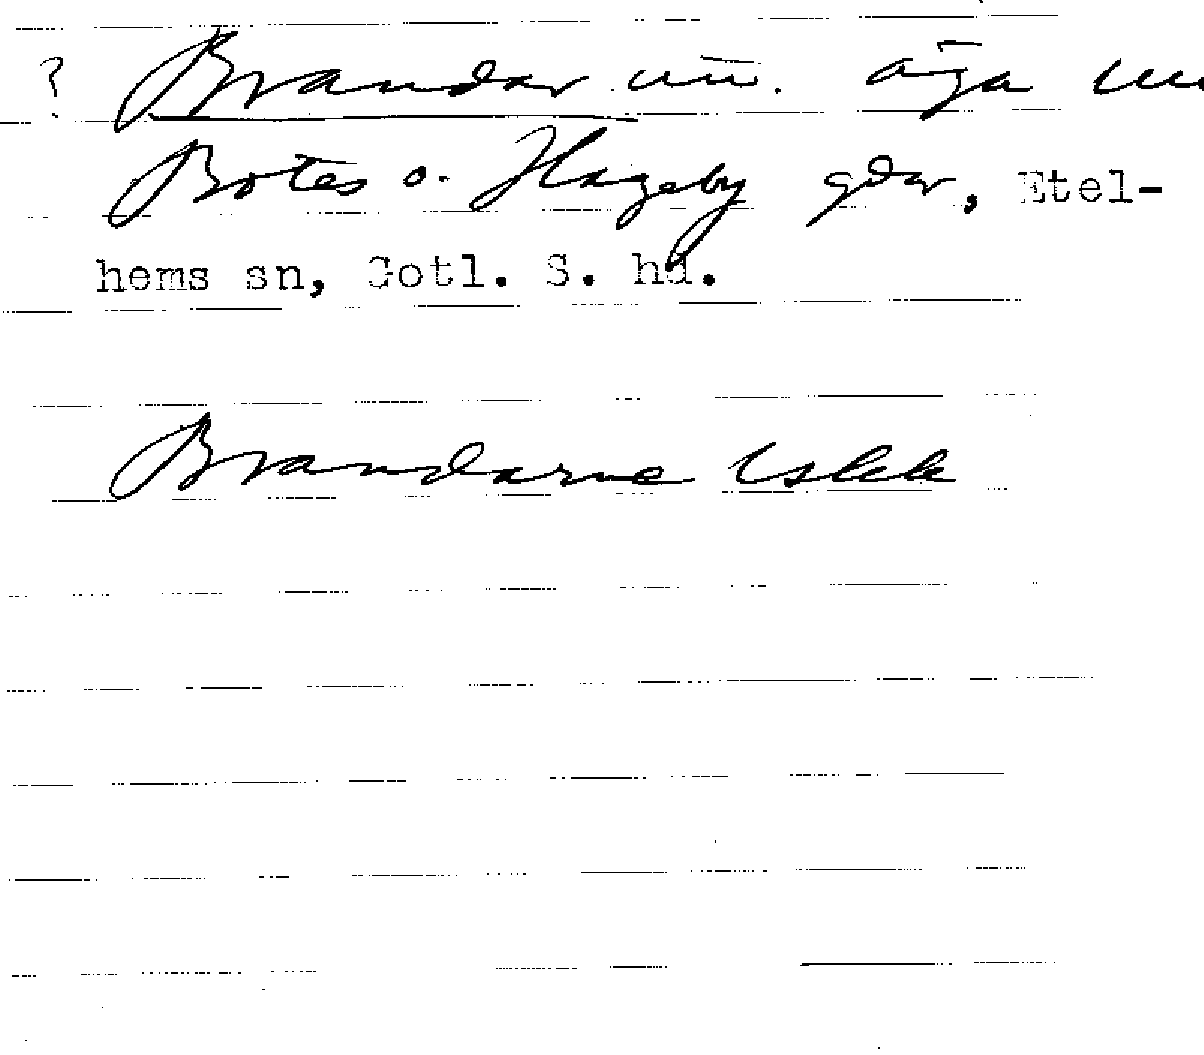 ? Brandar un. äga un
Botes o. Hageby gdr, Etel-
hems sn, Gotl. S. hd.
Brandarne Uskk